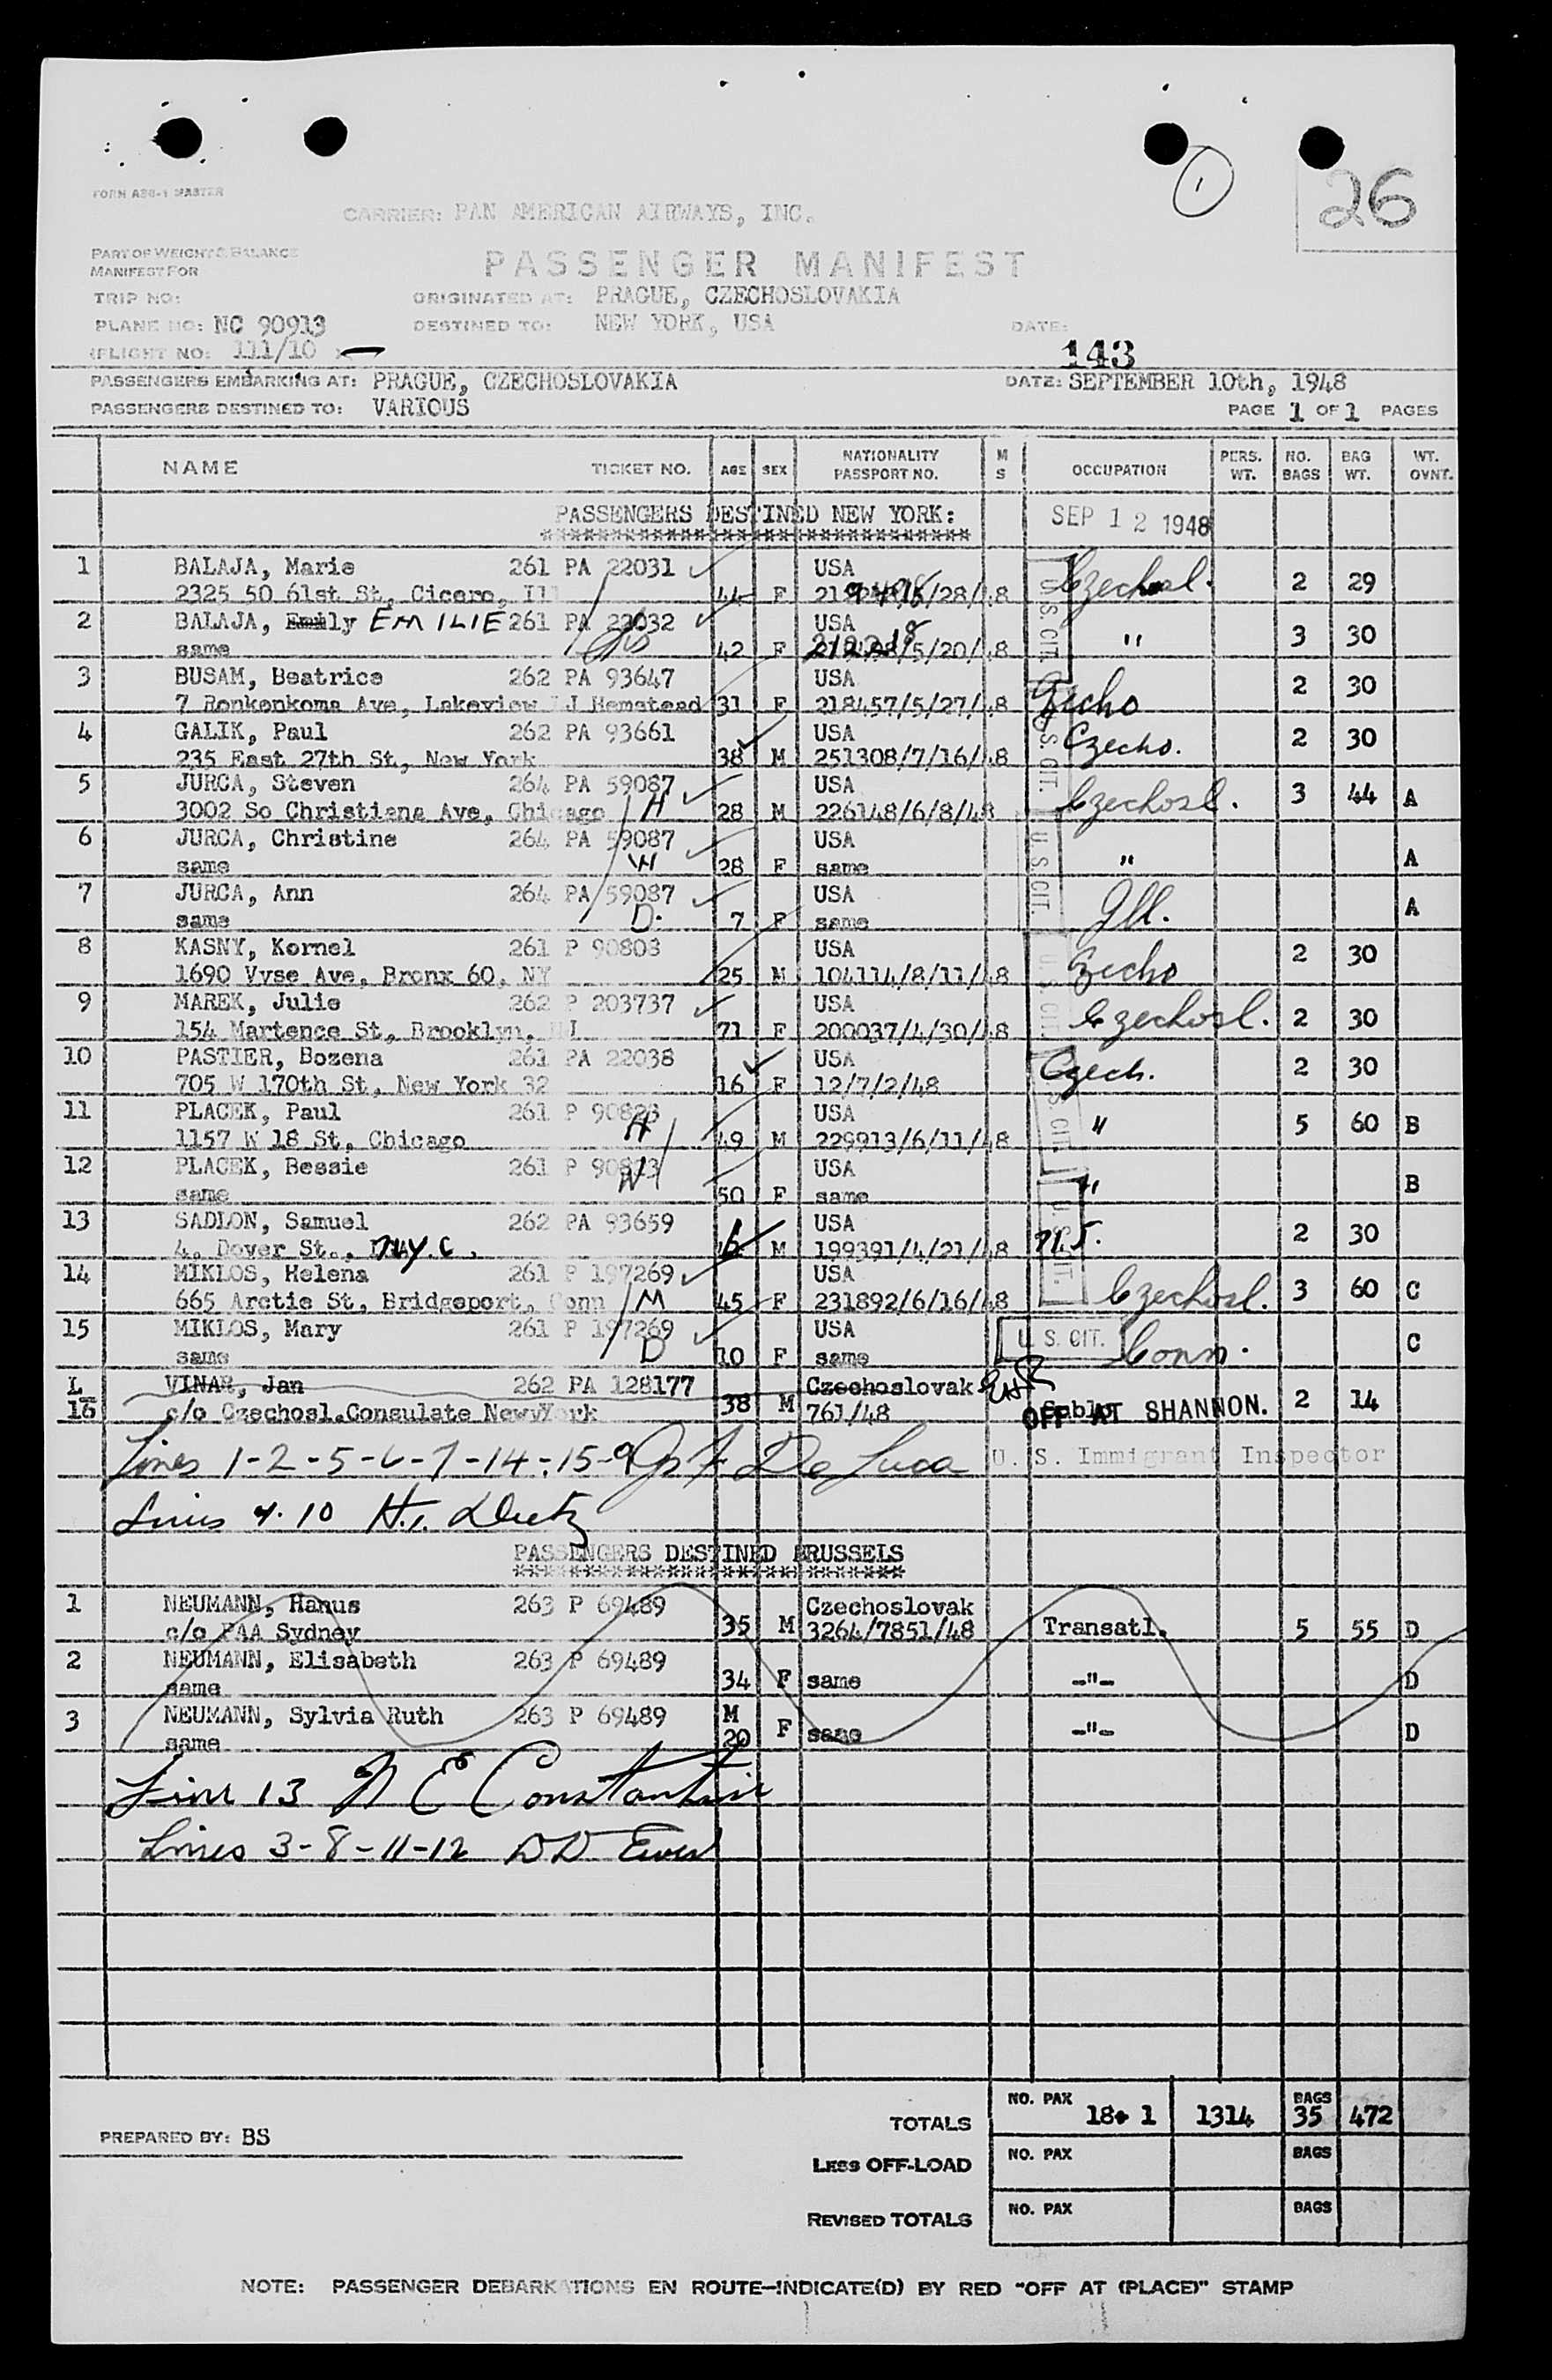 1
26
FORM ABG-1 MASTER
CARRIER: PAN AMERICAN AIRWAYS, INC.
PART OF WEIGHT & BALANCE
MANIFEST FOR
PASSENGER MANIFEST
TRIP NO:
ORIGINATED AT: PRAGUE, CZECHOSLOVAKIA
PLANE NO: NC 90913
DESTINED TO: NEW YORK, USA
DATE:
FLIGHT NO: 111/10
143
PASSENGERS EMBARKING AT: PRAGUE, CZECHOSLOVAKIA DATE: SEPTEMBER 10th, 1948
PASSENGERS DESTINED TO: VARIOUS PAGE 1 OF 1 PAGES
NAME TICKET NO. AGE SEX NATIONALITY PASSPORT NO. M S OCCUPATION PERS. WT. NO. BAGS BAG WT. WT. OVNT.
PASSENGERS DESTINED NEW YORK: SEP 12 1948
1 BALAJA, Marie 261 PA 22031 USA Czechosl. 2 29
2325 50 61st St, Cicero, Ill 44 F /28/48
2 BALAJA, Emily EMILIE 261 PA 22032 USA " 3 30
same 42 F /5/20/48
3 BUSAM, Beatrice 262 PA 93647 USA 2 30
7 Ronkonkoma Ave, Lakeview LJ Hemstead 31 F 218457/5/27/48 Czecho
4 GALIK, Paul 262 PA 93661 USA Czecho. 2 30
235 East 27th St, New York 38 M 251308/7/16/48
5 JURCA, Steven 264 PA 59087 USA 3 44 A
3002 So Christiana Ave, Chicago H 28 M 226148/6/8/48 Czechosl.
6 JURCA, Christine 264 PA 59087 USA " A
same W 28 F same
7 JURCA, Ann 264 PA 59087 USA Ill. A
same D. 7 F same
8 KASNY, Kornel 261 P 90803 USA 2 30
1690 Vyse Ave, Bronx 60, NY 25 M 104114/8/11/48 Czecho
9 MAREK, Julie 262 P 203737 USA Czechosl. 2 30
154 Martence St, Brooklyn, NJ 71 F 200037/4/30/48
10 PASTIER, Bozena 261 PA 22038 USA Czech. 2 30
705 W 170th St, New York 32 16 F 12/7/2/48
11 PLACEK, Paul 261 P 90823 USA " 5 60 B
1157 W 18 St, Chicago H 49 M 229913/6/11/48
12 PLACEK, Bessie 261 P 90823 USA " B
same W 50 F same
13 SADLON, Samuel 262 PA 93659 USA 2 30
4. Dover St., N.Y.C. M 199391/4/21/48 N.J.
14 MIKLOS, Helena 261 P 197269 USA 3 60 C
665 Arctie St, Bridgeport, Conn M 45 F 231892/6/16/48 Czechosl.
15 MIKLOS, Mary 261 P 197269 USA U. S. CIT. Conn. C
same D 10 F same
L VINAR, Jan 262 PA 128177 Czechoslovak
16 c/o Czechosl.Consulate New York 38 M 761/48 OFF AT SHANNON. 2 14
Lines 1-2-5-6-7-14-15-9 De Luca U. S. Immigrant Inspector
Lines 4.10
PASSENGERS DESTINED BRUSSELS
1 NEUMANN, Hanus 263 P 69489 Czechoslovak
c/o PAA Sydney 35 M 3264/7851/48 Transatl. 5 55 D
2 NEUMANN, Elisabeth 263 P 69489
same 34 F same -"- D
3 NEUMANN, Sylvia Ruth 263 P 69489 M
same 20 F same -"- D
Line 13 N E Constantair
Lines 3-8-11-12 DD
TOTALS NO. PAX 18+1 1314 BAGS 35 472
PREPARED BY: BS
LESS OFF-LOAD NO. PAX BAGS
REVISED TOTALS NO. PAX BAGS
NOTE: PASSENGER DEBARKATIONS EN ROUTE—INDICATE(D) BY RED "OFF AT (PLACE)" STAMP